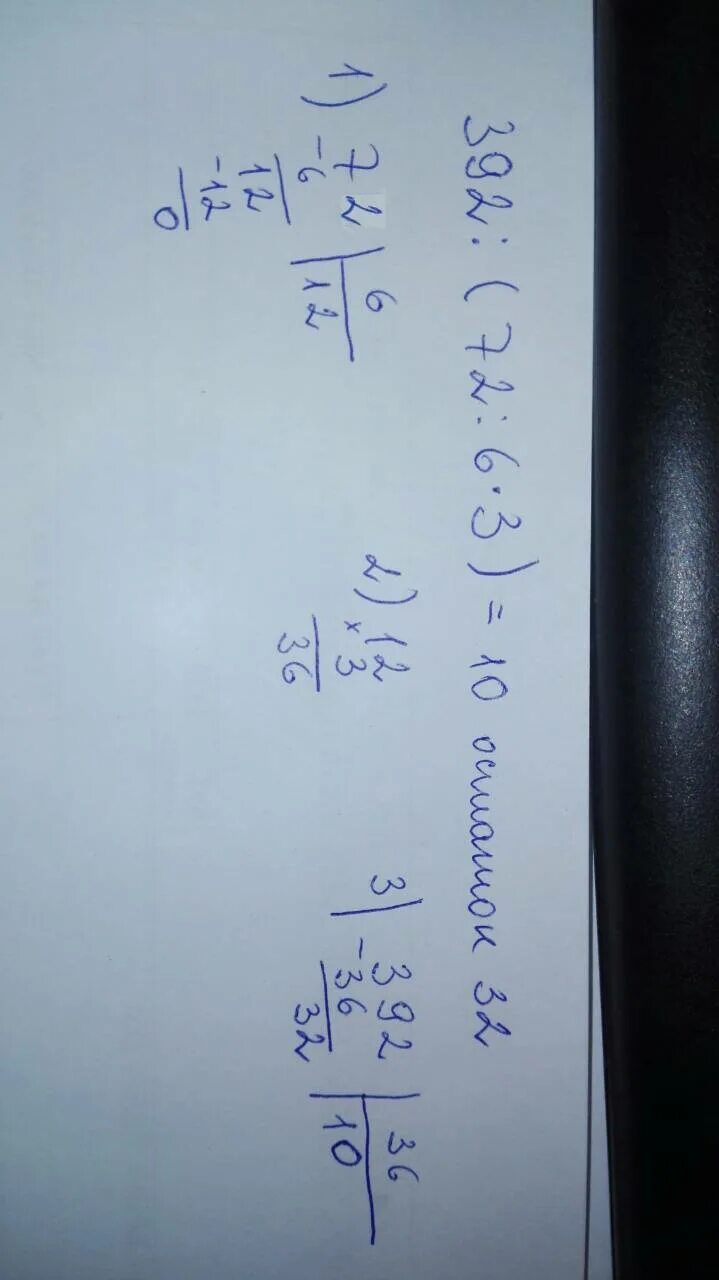 392 : ( 72 : 6 · 3 ) = 10 остаток 32
1) 72 | 6
-6 | 12
12
-12
0
2) 12
× 3
36
3) 392 | 36
-36 | 10
32